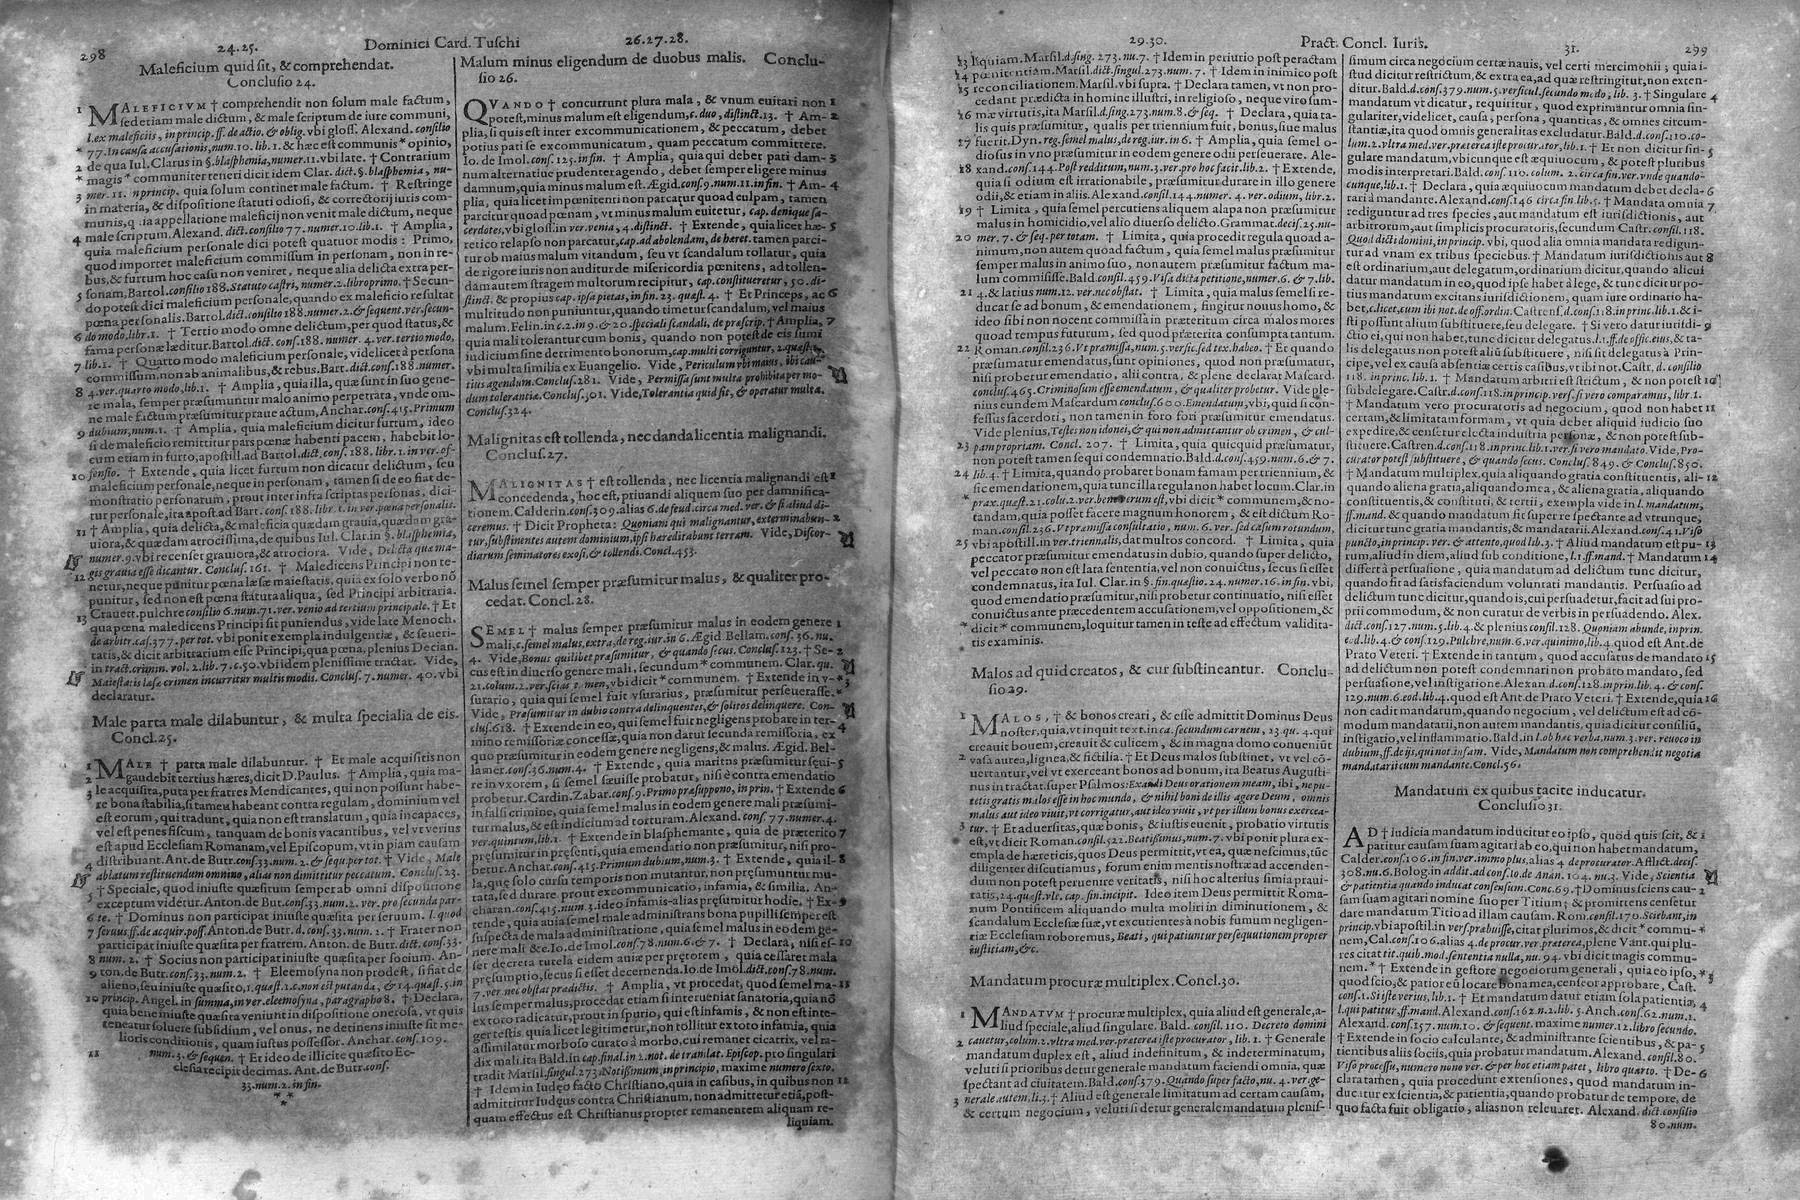 298
24.25.
Dominici Card. Tuschi
26.27.28.
Maleficium quid sit, & comprehendat.
Conclusio 24.
1 MALEFICIVM † comprehendit non solum male factum,
sed etiam male dictum, & male scriptum de iure communi,
l.ex maleficiis, in princip. ff. de actio. & oblig. vbi gloss. Alexand. consilio
* 77. In causa accusationis, num.10. lib.1. & hæc est communis * opinio,
2 de qua Iul. Clarus in §. blasphemia, numer.11. vbi late. † Contrarium
* magis * communiter teneri dicit idem Clar. dict. §. blasphemia, nu-
3 mer.11. in princip. quia solum continet male factum. † Restringe
in materia, & dispositione statuti odiosi, & correctorij iuris com-
munis, quia appellatione maleficij non venit male dictum, neque
4 male scriptum. Alexand. dict. consilio 77. num.10. lib.1. † Amplia,
quia maleficium personale dici potest quatuor modis: Primo,
quod importet maleficium commissum in personam, non in re-
bus, & furtum hoc casu non veniret, neque alia delicta extra per-
5 sonam, Bartol. consilio 188. Statuto castri, numer.2. libro primo. † Secun-
do potest dici maleficium personale, quando ex maleficio resultat
pœna personalis. Bartol. dict. consilio 188. numer.2. & sequent. ver. secun-
6 do modo, libr.1. † Tertio modo omne delictum, per quod status, &
fama personæ læditur. Bartol. dict. cons.188. numer. 4. ver. tertio modo,
7 lib.1. † Quarto modo maleficium personale, videlicet à persona
commissum, non ab animalibus, & rebus. Bart. dict. cons.188. numer.
8 4. ver. quarto modo, lib.1. † Amplia, quia illa, quæ sunt in suo gene-
re mala, semper præsumuntur malo animo perpetrata, vnde om-
ne male factum præsumitur praue actum, Anchar. cons.415. Primum
9 dubium, num.1. † Amplia, quia maleficium dicitur furtum, ideo
si de maleficio remittitur pars pœnæ habenti pacem, habebit lo-
cum etiam in furto, apostill. ad Bartol. dict. cons. 188. libr.1. in ver. of-
10 fensio. † Extende, quia licet furtum non dicatur delictum, seu
maleficium personale, neque in personam, tamen si de eo fiat de-
monstratio personarum, prout inter infra scriptas personas, dici-
tur personale, ita apost. ad Bart. cons.188. libr.1. in ver. pœna personalis.
11 † Amplia, quia delicta, & maleficia quædam grauia, quædam gra-
uiora, & quædam atrocissima, de quibus Iul. Clar. in §. blasphemia,
numer.9. vbi recenset grauiora, & atrociora. Vide, Delicta quæ ma-
12 gis grauia esse dicantur. Conclus. 161. † Maledicens Principi non te-
netur, neque punitur pœna læsæ maiestatis, quia ex solo verbo nõ
punitur, sed non est pœna statuta aliqua, sed Principi arbitraria.
Crauett. pulchre consilio 6. num.71. ver. venio ad tertium principale. † Et
13 qua pœna maledicens Principi sit puniendus, vide late Menoch.
de arbitr. cas.377. per tot. vbi ponit exempla indulgentiæ, & seueri-
tatis, & dicit arbitrarium esse Principi, qua pœna, plenius Decian.
in tract. crimin. vol.2. lib.7. c.50. vbi idem plenissime tractat. Vide,
Maiestatis læsæ crimen incurritur multis modis. Conclus. 7. numer. 40. vbi
declaratur.
Male parta male dilabuntur, & multa specialia de eis.
Concl.25.
1 MALE † parta male dilabuntur. † Et male acquisitis non
2 gaudebit tertius hæres, dicit D. Paulus. † Amplia, quia ma-
3 le acquisita, puta per fratres Mendicantes, qui non possunt habe-
re bona stabilia, si tamen habeant contra regulam, dominium vel
est eorum, qui tradunt, quia non est translatum, quia incapaces,
vel est penes fiscum, tanquam de bonis vacantibus, vel vt verius
est apud Ecclesiam Romanam, vel Episcopum, vt in piam causam
distribuant. Ant. de Butr. cons.33. num.2. & sequ. per tot. † Vide, Male
4 ablatum restituendum omnino, alias non dimittitur peccatum. Conclus. 23.
† Speciale, quod iniuste quæsitum semper ab omni dispositione
5 exceptum videtur. Anton. de But. cons.33. num.2. ver. pro secunda par-
6 te. † Dominus non participat iniuste quæsita per seruum. l. quod
7 seruus, ff. de acquir. poss. Anton. de Butr. d. cons.33. num.2. † Frater non
participat iniuste quæsita per fratrem. Anton. de Butr. dict. cons.33.
8 num. 2. † Socius non participat iniuste quæsita per socium. An-
9 ton. de Butr. cons.33. num.2. † Eleemosyna non prodest, si fiat de
alieno, seu iniuste quæsito, 1. quæst.1. c. non est putanda, & 14. quæst.5. in
10 princip. Angel. in summa, in ver. eleemosyna, paragrapho 8. † Declara,
quia bene iniuste quæsita veniunt in dispositione onerosa, vt quis
teneatur soluere subsidium, vel onus, ne detinens iniuste sit me-
lioris conditionis, quam iustus possessor. Anchar. cons.109.
11 num.3. & sequen. † Et ideo de illicite quæsito Ec-
clesia recipit decimas. Ant. de Butr. cons.
33. num.2. in fin.
Malum minus eligendum de duobus malis. Conclu-
sio 26.
QVANDO † concurrunt plura mala, & vnum euitari non 1
potest, minus malum est eligendum, c. duo, distinct.13. † Am- 2
plia, si quis est inter excommunicationem, & peccatum, debet
potius pati se excommunicatum, quam peccatum committere.
Io. de Imol. cons.125. in fin. † Amplia, quia qui debet pati dam- 3
num alternatiue prudenter agendo, debet semper eligere minus
damnum, quia minus malum est. Ægid. cons.9. num.11. in fin. † Am- 4
plia, quia licet impœnitenti non parcatur quoad culpam, tamen
parcitur quoad pœnam, vt minus malum euitetur, cap. denique sa-
cerdotes, vbi gloss. in ver. venia, 4. distinct. † Extende, quia licet hæ- 5
retico relapso non parcatur, cap. ad abolendam, de hæret. tamen parci-
tur ob maius malum vitandum, seu vt scandalum tollatur, quia
de rigore iuris non auditur de misericordia pœnitens, ad tollen-
dam autem stragem multorum recipitur, cap. constitueretur, 50. di-
stinct. & propius cap. ipsa pietas, in fin. 23. quæst. 4. † Et Princeps, ac 6
multitudo non puniuntur, quando timetur scandalum, vel maius
malum. Felin. in c.2. in 9. & 20. speciali scandali, de præscrip. † Amplia, 7
quia mali tolerantur cum bonis, quando non potest de eis sumi
iudicium sine detrimento bonorum, cap. multi corriguntur, 2. quæst.1.
vbi multa similia ex Euangelio. Vide, Periculum vbi maius, ibi cau-
tius agendum. Conclus.281. Vide, Permissa sunt multa prohibita per mo-
dum tolerantiæ. Conclus.301. Vide, Tolerantia quid sit, & operatur multa.
Conclus.324.
Malignitas est tollenda, nec danda licentia malignandi.
Conclus.27.
MALIGNITAS † est tollenda, nec licentia malignandi est 1
concedenda, hoc est, priuandi aliquem suo per damnifica-
tionem. Calderin. cons.309. alias 6. de feud. circa med. ver. & si aliud di-
ceremus. † Dicit Propheta: Quoniam qui malignantur, exterminabun- 2
tur, substinentes autem dominium, ipsi hæreditabunt terram. Vide, Discor-
diarum seminatores exosi, & tollendi. Concl.453.
Malus semel semper præsumitur malus, & qualiter pro-
cedat. Concl.28.
SEMEL † malus semper præsumitur malus in eodem genere 1
mali, c. semel malus, extra, de reg. iur. in 6. Ægid. Bellam. cons. 36. nu.
4. Vide, Bonus quilibet præsumitur, & quando secus. Conclus. 123. † Se- 2
cus est in diuerso genere mali, secundum * communem. Clar. qu.
21. colum.2. ver. scias tamen, vbi dicit * communem. † Extende in v- * 3
surario, quia qui semel fuit vsurarius, præsumitur perseuerasse. *
Vide, Præsumitur in dubio contra delinquentes, & solitos delinquere. Con-
clus.618. † Extende in eo, qui semel fuit negligens probare in ter- 4
mino remissoriæ concessæ, quia non datur secunda remissoria, ex
quo præsumitur in eodem genere negligens, & malus. Ægid. Bel-
lamer. cons.36. num.4. † Extende, quia maritus præsumitur sęui- 5
re in vxorem, si semel sæuisse probatur, nisi è contra emendatio
probetur. Cardin. Zabar. cons.9. Primo præsuppono, in prin. † Extende 6
in falsi crimine, quia semel malus in eodem genere mali præsumi-
tur malus, & est indicium ad torturam. Alexand. cons.77. numer.4.
ver. quintum, lib.1. † Extende in blasphemante, quia de præterito 7
pręsumitur in pręsenti, quia emendatio non præsumitur, nisi pro-
betur. Anchar. cons.415. Primum dubium, num.3. † Extende, quia il- 8
la, quę solo cursu temporis non mutantur, non pręsumuntur mu-
tata, sed durare, prout excommunicatio, infamia, & similia. An-
charan. cons.415. num.3. ideo infamis alias pręsumitur hodie. † Ex- 9
tende, quia auia semel male administrans bona pupilli semper est
suspecta de mala administratione, quia semel malus in eodem ge-
nere mali &c. Io. de Imol. cons.78. num.6. & 7. † Declara, nisi es- 10
set decreta tutela eidem auiæ per prętorem, quia cessaret mala
pręsumptio, secus si esset decernenda. Io. de Imol. dict. cons.78. num.
7. ver. nec obstat prædictis. † Amplia, vt procedat, quod semel ma- 11
lus semper malus, procedat etiam si interueniat sanatoria, quia nõ
ex toto radicatur, prout in spurio, qui est infamis, & non est inte-
ger testis, quia licet legitimetur, non tollitur ex toto infamia, quia
assimilatur morboso curato à morbo, cui remanet cicatrix, vel ra-
dix mali. ita Bald. in cap. final. in 2. not. de translat. Episcop. pro singulari
tradit Marsil. singul. 273. Notissimum, in principio, maxime numero sexto.
† Idem in Iudęo facto Christiano, quia in casibus, in quibus non 12
admittitur Iudęus contra Christianum, non admittetur etiã, post-
quam effectus est Christianus propter remanentem aliquam re-
liquiam.
29.30.
Pract. Concl. Iuris.
31.
299
13 liquiam. Marsil. d. sing. 273. nu.7. † Idem in periurio post peractam
14 pœnitentiam. Marsil. dict. singul. 273. num. 7. † Idem in inimico post
15 reconciliationem. Marsil. vbi supra. † Declara tamen, vt non pro-
cedant prædicta in homine illustri, in religioso, neque viro sum-
16 mæ virtutis, ita Marsil. d. sing. 273. num.8. & seq. † Declara, quia ta-
lis quis præsumitur, qualis per triennium fuit, bonus, siue malus
17 fuerit. Dyn. reg. semel malus, de reg. iur. in 6. † Amplia, quia semel o-
diosus in vno præsumitur in eodem genere odii perseuerare. Ale-
18 xand. cons.144. Post redditum, num.3. ver. pro hoc facit. lib.2. † Extende,
quia si odium est irrationabile, præsumitur durare in illo genere
odii, & etiam in aliis. Alexand. cons.144. numer. 4. ver. odium, libr.2.
19 † Limita, quia semel percutiens aliquem alapa non præsumitur
malus in homicidio, vel alio diuerso delicto. Grammat. decis.25. nu-
20 mer. 7. & seq. per totam. † Limita, quia procedit regula quoad a-
nimum, non autem quoad factum, quia semel malus præsumitur
semper malus in animo suo, non autem præsumitur factum ma-
lum commisisse. Bald. consil.459. Visa dicta petitione, numer.6. & 7. lib.
21 4. & latius num.12. ver. nec obstat. † Limita, quia malus semel si re-
ducat se ad bonum, & emendationem, fingitur nouus homo, &
ideo sibi non nocent commissa in præteritum circa malos mores
quoad tempus futurum, sed quod præterita consumpta tantum.
22 Roman. consil.236. Vt præmissa, num.5. versic. sed tex. habeo. † Et quando
præsumatur emendatus, sunt opiniones, quod non præsumatur,
nisi probetur emendatio, alii contra, & plene declarat Mascard.
conclus.465. Criminosum esse emendatum, & qualiter probetur. Vide ple-
nius eundem Mascardum conclus.600. Emendatum, vbi, quid si con-
fessus sacerdoti, non tamen in foro fori præsumitur emendatus.
Vide plenius, Testes non idonei, & qui non admittantur ob crimen, & cul-
23 pam propriam. Concl. 207. † Limita, quia quicquid præsumatur,
non potest tamen sequi condemnatio. Bald. d. cons. 459. num.6. & 7.
24 lib.4. † Limita, quando probaret bonam famam per triennium, &
sic emendationem, quia tunc illa regula non habet locum. Clar. in
* prax. quæst.21. colu.2. ver. bene verum est, vbi dicit * communem, & no-
tandam, quia posset facere magnum honorem, & est dictum Ro-
man. consil.236. Vt præmissa consultatio, num. 6. ver. sed casum rotundum,
25 vbi apostill. in ver. triennalis, dat multos concord. † Limita, quia
peccator præsumitur emendatus in dubio, quando super delicto,
vel peccato non est lata sententia, vel non conuictus, seu si esset
condemnatus, ita Iul. Clar. in §. fin. quæstio. 24. numer.16. in fin. vbi,
quod emendatio præsumitur, nisi probetur continuatio, nisi esset
conuictus ante præcedentem accusationem, vel oppositionem, &
* dicit * communem, loquitur tamen in teste ad effectum validita-
tis examinis.
Malos ad quid creatos, & cur substineantur. Conclu-
sio 29.
1 MALOS, † & bonos creari, & esse admittit Dominus Deus
noster, quia, vt inquit text. in ca. secundum carnem, 23. qu. 4. qui
creauit bouem, creauit & culicem, & in magna domo conueniũt
2 vasa aurea, lignea, & fictilia. † Et Deus malos substinet, vt vel cõ-
uertantur, vel vt exerceant bonos ad bonum, ita Beatus Augusti-
nus in tractat. super Psalmos: Exaudi Deus orationem meam, ibi, ne pu-
tetis gratis malos esse in hoc mundo, & nihil boni de illis agere Deum, omnis
malus aut ideo viuit, vt corrigatur, aut ideo viuit, vt per illum bonus exercea-
3 tur. † Et aduersitas, quæ bonis, & iustis euenit, probatio virtutis
est, vt dicit Roman. consil.522. Beatissimus, num.7. vbi ponit plura ex-
empla de hæreticis, quos Deus permittit, vt ea, quæ nescimus, tũc
diligenter discutiamus, forum enim mentis nostræ ad accenden-
dum non potest peruenire veritatis, nisi hoc alterius simia praui-
tatis, 24. quæst. vlt. cap. fin. incipit. Ideo item Deus permittit Roma-
num Pontificem aliquando multa moliri in diminutionem, &
scandalum Ecclesiæ suæ, vt excutientes à nobis fumum negligen-
tiæ Ecclesiam roboremus, Beati, qui patiuntur persequutionem propter
iustitiam, &c.
Mandatum procuræ multiplex. Concl.30.
1 MANDATVM † procuræ multiplex, quia aliud est generale, a-
liud speciale, aliud singulare. Bald. consil. 110. Decreto domini
2 cauetur, colum.2. vltra med. ver. præterea iste procurator, lib. 1. † Generale
mandatum duplex est, aliud indefinitum, & indeterminatum,
veluti si prioribus detur generale mandatum faciendi omnia, quæ
spectant ad ciuitatem. Bald. cons.379. Quando super facto, nu. 4. ver. ge-
3 nerale autem, li.3. † Aliud est generale limitatum ad certam causam,
& certum negocium, veluti si detur generale mandatum plenis-
simum circa negocium certæ nauis, vel certi mercimonii; quia i-
stud dicitur restrictum, & extra ea, ad quæ restringitur, non exten-
ditur. Bald. d. cons.379. num.5. versicul. secundo modo, lib. 3. † Singulare 4
mandatum vt dicatur, requiritur, quod exprimantur omnia sin-
gulariter, videlicet, causa, persona, quantitas, & omnes circum-
stantiæ, ita quod omnis generalitas excludatur. Bald. d. cons.110. co-
lum.2. vltra med. ver. præterea iste procurator, lib.1. † Et non dicitur sin- 5
gulare mandatum, vbicunque est æquiuocum, & potest pluribus
modis interpretari. Bald. cons.110. colum. 2. circa fin. ver. vnde quando-
cunque, lib.1. † Declara, quia æquiuocum mandatum debet decla- 6
rari à mandante. Alexand. cons.146 circa fin. lib.5. † Mandata omnia 7
rediguntur ad tres species, aut mandatum est iurisdictionis, aut
arbitrorum, aut simplicis procuratoris, secundum Castr. consil.118.
Quod dicti domini, in princip. vbi, quod alia omnia mandata redigun-
tur ad vnam ex tribus speciebus. † Mandatum iurisdictionis aut 8
est ordinarium, aut delegatum, ordinarium dicitur, quando alicui
datur mandatum in eo, quod ipse habet à lege, & tunc dicitur po-
tius mandatum excitans iurisdictionem, quam iure ordinario ha-
bet, c. licet, cum ibi not. de off. ordin. Castrens. d. cons.118. in princ. lib.1. & i-
sti possunt alium substituere, seu delegare. † Si vero datur iurisdi- 9
ctio ei, qui non habet, tunc dicitur delegatus. l.1. ff. de offic. eius, & ta-
lis delegatus non potest aliũ substituere, nisi sit delegatus à Prin-
cipe, vel ex causa absentiæ certis casibus, vt ibi not. Castr. d. consilio
118. in princ. lib. 1. † Mandatum arbitri est strictum, & non potest 10
subdelegare. Castr. d. cons.118. in princip. vers. si vero comparamus, libr.1.
† Mandatum vero procuratoris ad negocium, quod non habet 11
certam, & limitatam formam, vt quia debet aliquid iudicio suo
expedire, & censetur electa industria personæ, & non potest sub-
stituere. Castren. d. cons.118. in princ. lib.1. ver. si vero mandato. Vide, Pro-
curator potest substituere, & quando secus. Conclus.849. & Conclus.850.
† Mandatum multiplex. quia aliquando gratia constituentis, ali- 12
quando aliena gratia, aliquando domnea, & aliena gratia, aliquando
constituentis, & constituti, & tertii, exempla vide in l. mandatum,
ff. mand. & quando mandatum sit fauore respectante ad vtrunque,
dicitur tunc gratia mandantis, & mandatarii. Alexand. cons.41. Viso
puncto, in princip. ver. & attento, quod lib.3. † Aliud mandatum est pu- 13
rum, aliud in diem, aliud sub conditione, l.1. ff. mand. † Mandatum 14
differt à persuasione, quia mandatum ad delictum tunc dicitur,
quando fit ad satisfaciendum voluntati mandantis. Persuasio ad
delictum tunc dicitur, quando is, cui persuadetur, facit ad sui pro-
prii commodum, & non curatur de verbis in persuadendo. Alex.
dict. cons.127. num.5. lib.4. & plenius consil.128. Quoniam abunde, in prin.
eod. lib.4. & cons.129. Pulchre, num.6. ver. quinimo, lib.4. quod est Ant. de
Prato Veteri. † Extende in tantum, quod accusatus de mandato 15
ad delictum non potest condemnari non probato mandato, sed
persuasione, vel instigatione. Alexan. d. cons.128. in prin. lib.4. & cons.
129. num.6. eod. lib.4. quod est Ant. de Prato Veteri. † Extende, quia 16
non cadit mandatum, quando negocium, vel delictum est ad cõ-
modum mandatarii, non autem mandantis, quia dicitur consiliũ,
instigatio, vel inflammatio. Bald. in l. ob hæc verba, num.3. ver. reuoco in
dubium, ff. de iis, qui not. infam. Vide, Mandatum non comprehendit negotia
mandatarii cum mandante. Concl.56.
Mandatum ex quibus tacite inducatur.
Conclusio 31.
AD † iudicia mandatum inducitur eo ipso, quod quis scit, & 1
patitur causam suam agitari ab eo, qui non habet mandatum,
Calder. cons.106. in fin. ver. immo plus, alias 4. de procurator. Afflict. decis.
308. nu.6. Bolog. in addit. ad cons.10. de Anan. 104. nu.3. Vide, Scientia
& patientia quando inducat consensum. Conc.69. † Dominus sciens cau- 2
sam suam agitari nomine suo per Titium; & promittens censetur
dare mandatum Titio ad illam causam. Rom. consil.170. Sciebant, in
princip. vbi apostil. in vers. præbuisse, citat plurimos, & dicit * commu- *
nem, Cal. cons.106. alias 4. de procur. ver. præterea, plene Vant. qui plu-
res citat tit. quib. mod. sententia nulla, nu. 94. vbi dicit magis commu-
nem. * † Extende in gestore negociorum generali, quia eo ipso, * 3
quod scio, & patior eũ locare bona mea, censeor approbare, Cast.
cons.1. Si iste verius, lib.1. † Et mandatum datur etiam sola patientia, 4
l. qui patitur, ff. mand. Alexand. cons.162. n.2. lib. 5. Anch. cons.62. nu.1.
Alexand. cons.157. num.10. & sequent. maxime numer.12. libro secundo.
† Extende in socio calculante, & administrante scientibus, & pa- 5
tientibus aliis sociis, quia probatur mandatum. Alexand. consil.80.
Viso processu, numero nono ver. & per hoc etiam patet, libro quarto. † De- 6
clara tamen, quia procedunt extensiones, quod mandatum in-
ducatur ex scientia, & patientia, quando probatur de tempore, de
quo facta fuit obligatio, alias non releuaret. Alexand. dict. consilio
80. num.